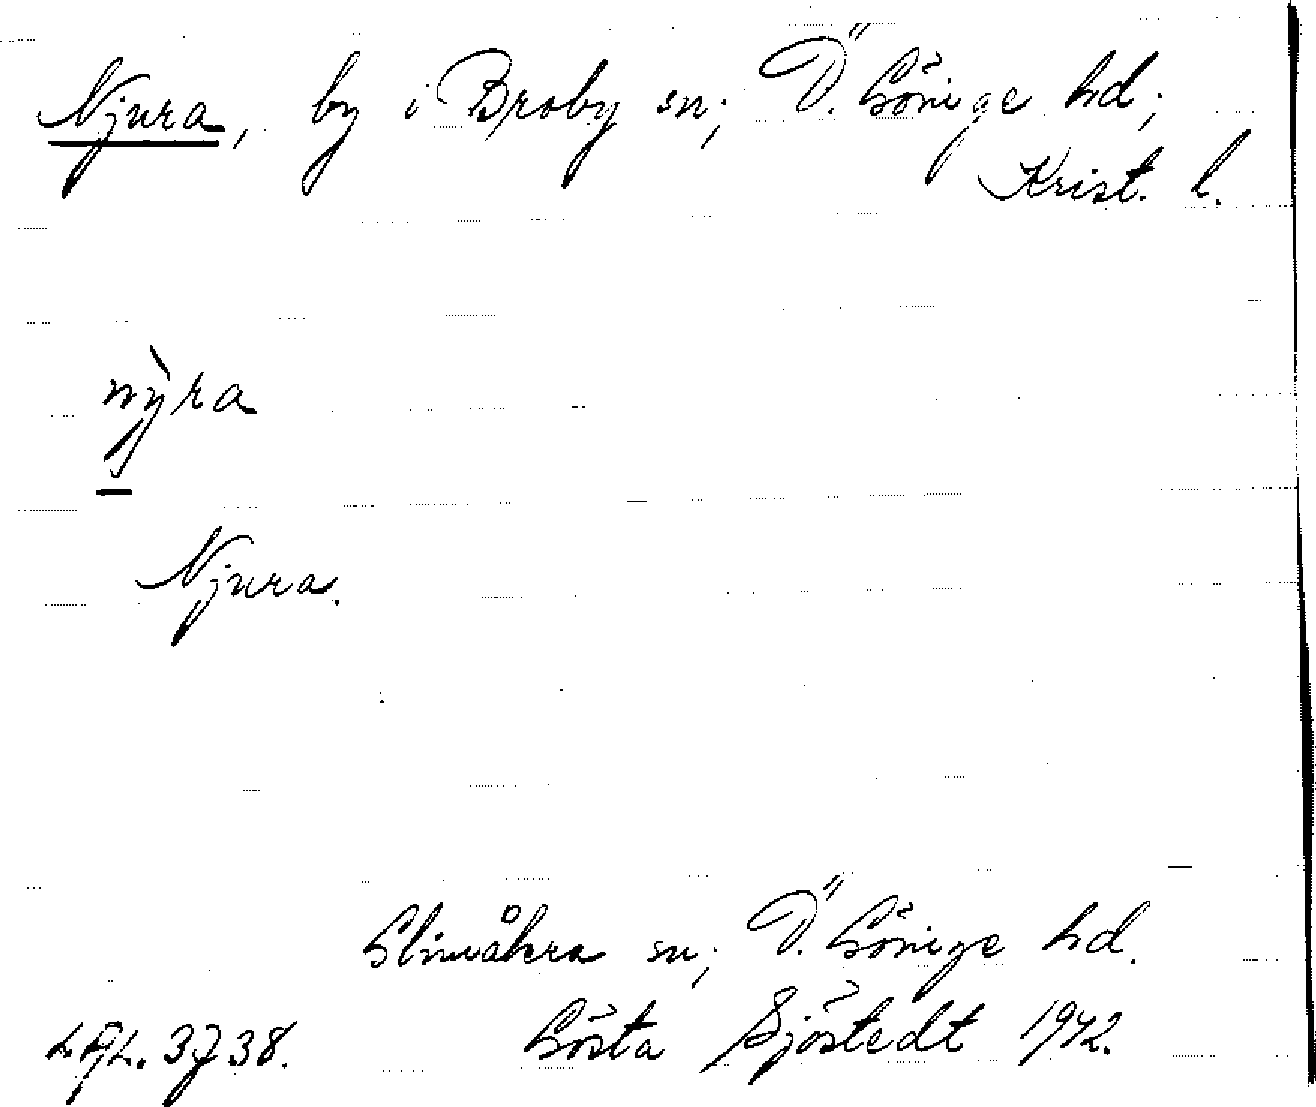 Njura, by i Broby sn; Ö. Göinge hd;
Krist. l.
nỳra
Njura.
Glimåkra sn; Ö. Göinge hd.
LAL. 3738. Gösta Sjöstedt 1942.